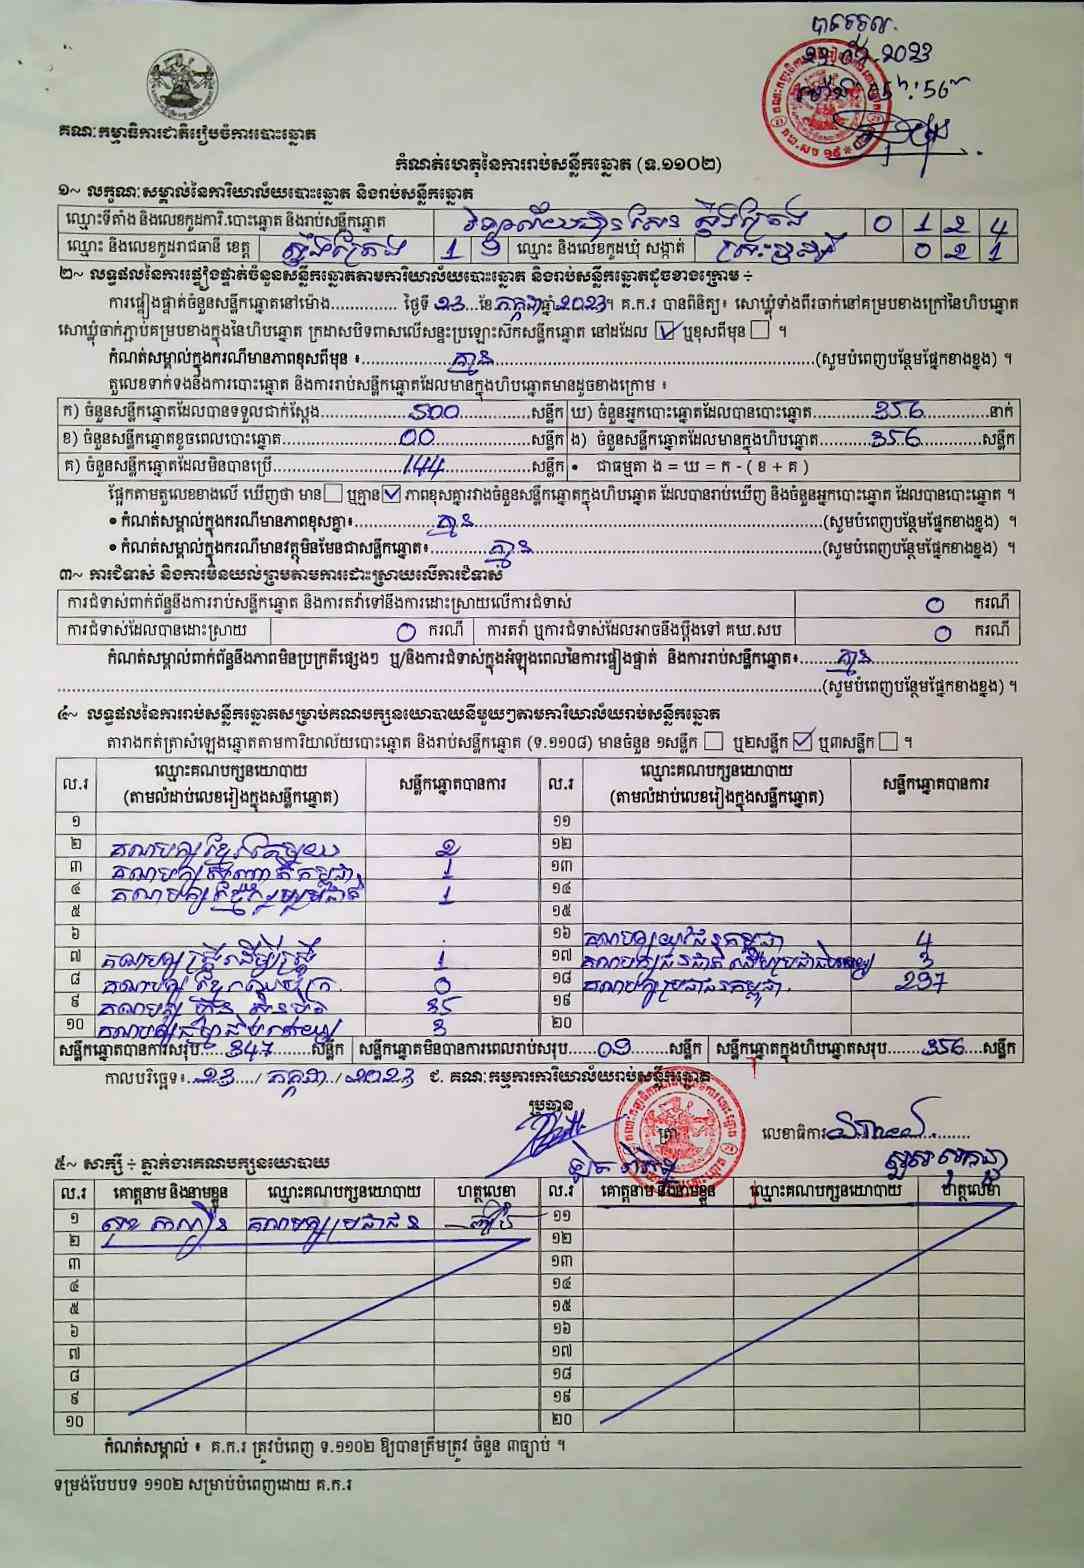 ២៣.៧.2023
ម៉ោង 05h:56m
គណៈកម្មាធិការជាតិរៀបចំការបោះឆ្នោត
កំណត់ហេតុនៃការរាប់សន្លឹកឆ្នោត (ទ.១១០២)
១~ លក្ខណៈសម្គាល់នៃការិយាល័យបោះឆ្នោត និងរាប់សន្លឹកឆ្នោត
ឈ្មោះទីតាំង និងលេខកូដការិ.បោះឆ្នោត និងរាប់សន្លឹកឆ្នោត វិទ្យាល័យហ៊ុន សែន ស្ទឹងត្រែង 0 1 2 4
ឈ្មោះ និងលេខកូដរាជធានី ខេត្ត ស្ទឹងត្រែង 1 9 ឈ្មោះ និងលេខកូដឃុំ សង្កាត់ 0 2 1
២~ លទ្ធផលនៃការផ្ទៀងផ្ទាត់ចំនួនសន្លឹកឆ្នោតតាមការិយាល័យបោះឆ្នោត និងរាប់សន្លឹកឆ្នោតដូចខាងក្រោម ÷
ការផ្ទៀងផ្ទាត់ចំនួនសន្លឹកឆ្នោតនៅម៉ោង............. ថ្ងៃទី 23 ...ខែ កក្កដា ឆ្នាំ 2023។ គ.ក.រ បានពិនិត្យ៖ សោឃ្លុំទាំងពីរចាក់នៅគម្របខាងក្រៅនៃហិបឆ្នោត
សោឃ្លុំចាក់ភ្ជាប់គម្របខាងក្នុងនៃហិបឆ្នោត ក្រដាសបិទពាសលើសន្ទះប្រឡោះស៊កសន្លឹកឆ្នោត នៅដដែល ☑ ឬខុសពីមុន ☐ ។
កំណត់សម្គាល់ក្នុងករណីមានភាពខុសពីមុន ៖ គ្មាន (សូមបំពេញបន្ថែមផ្នែកខាងខ្នង) ។
តួលេខទាក់ទងនឹងការបោះឆ្នោត និងការរាប់សន្លឹកឆ្នោតដែលមានក្នុងហិបឆ្នោតមានដូចខាងក្រោម ៖
ក) ចំនួនសន្លឹកឆ្នោតដែលបានទទួលជាក់ស្តែង 500 សន្លឹក ឃ) ចំនួនអ្នកបោះឆ្នោតដែលបានបោះឆ្នោត 356 នាក់
ខ) ចំនួនសន្លឹកឆ្នោតខូចពេលបោះឆ្នោត 00 សន្លឹក ង) ចំនួនសន្លឹកឆ្នោតដែលមានក្នុងហិបឆ្នោត 356 សន្លឹក
គ) ចំនួនសន្លឹកឆ្នោតដែលមិនបានប្រើ 144 សន្លឹក • ជាធម្មតា ង = ឃ = ក - ( ខ + គ )
ផ្អែកតាមតួលេខខាងលើ ឃើញថា មាន ☐ ឬគ្មាន ☑ ភាពខុសគ្នារវាងចំនួនសន្លឹកឆ្នោតក្នុងហិបឆ្នោត ដែលបានរាប់ឃើញ និងចំនួនអ្នកបោះឆ្នោត ដែលបានបោះឆ្នោត ។
• កំណត់សម្គាល់ក្នុងករណីមានភាពខុសគ្នា៖ គ្មាន (សូមបំពេញបន្ថែមផ្នែកខាងខ្នង) ។
• កំណត់សម្គាល់ក្នុងករណីមានវត្ថុមិនមែនជាសន្លឹកឆ្នោត៖ គ្មាន (សូមបំពេញបន្ថែមផ្នែកខាងខ្នង) ។
៣~ ការជំទាស់ និងការមិនយល់ព្រមតាមការដោះស្រាយលើការជំទាស់
ការជំទាស់ពាក់ព័ន្ធនឹងការរាប់សន្លឹកឆ្នោត និងការតវ៉ាទៅនឹងការដោះស្រាយលើការជំទាស់ 0 ករណី
ការជំទាស់ដែលបានដោះស្រាយ 0 ករណី ការតវ៉ា ឬការជំទាស់ដែលអាចនឹងប្តឹងទៅ គឃ.សប 0 ករណី
កំណត់សម្គាល់ពាក់ព័ន្ធនឹងភាពមិនប្រក្រតីផ្សេងៗ ឬ/និងការជំទាស់ក្នុងអំឡុងពេលនៃការផ្ទៀងផ្ទាត់ និងការរាប់សន្លឹកឆ្នោត៖ គ្មាន
(សូមបំពេញបន្ថែមផ្នែកខាងខ្នង) ។
៤~ លទ្ធផលនៃការរាប់សន្លឹកឆ្នោតសម្រាប់គណបក្សនយោបាយនីមួយៗតាមការិយាល័យរាប់សន្លឹកឆ្នោត
តារាងកត់ត្រាសំឡេងឆ្នោតតាមការិយាល័យបោះឆ្នោត និងរាប់សន្លឹកឆ្នោត (ទ.១១០៨) មានចំនួន ១សន្លឹក ☐ ឬ២សន្លឹក ☑ ឬ៣សន្លឹក ☐ ។
ល.រ ឈ្មោះគណបក្សនយោបាយ (តាមលំដាប់លេខរៀងក្នុងសន្លឹកឆ្នោត) សន្លឹកឆ្នោតបានការ ល.រ ឈ្មោះគណបក្សនយោបាយ (តាមលំដាប់លេខរៀងក្នុងសន្លឹកឆ្នោត) សន្លឹកឆ្នោតបានការ
១ ១១
២ គណបក្សខ្មែរតែមួយ 2 ១២
៣ គណបក្ស កម្ពុជា 1 ១៣
៤ គណបក្ស 1 ១៤
៥ ១៥
៦ ១៦ គណបក្ស កម្ពុជា 4
៧ គណបក្សស្ត្រីដើម្បីស្ត្រី 1 ១៧ គណបក្ស 3
៨ គណបក្ស 0 ១៨ គណបក្សប្រជាជនកម្ពុជា 297
៩ គណបក្សហ៊្វុនស៊ិនប៉ិច 35 ១៩
១០ គណបក្ស 3 ២០
សន្លឹកឆ្នោតបានការសរុប 347 សន្លឹក សន្លឹកឆ្នោតមិនបានការពេលរាប់សរុប 09 សន្លឹក សន្លឹកឆ្នោតក្នុងហិបឆ្នោតសរុប 356 សន្លឹក
កាលបរិច្ឆេទ៖ 23 / កក្កដា / 2023 ជ. គណៈកម្មការការិយាល័យរាប់សន្លឹកឆ្នោត
ប្រធាន
ត្រា លេខាធិការ
៥~ សាក្សី ÷ ភ្នាក់ងារគណបក្សនយោបាយ
ល.រ គោត្តនាម និងនាមខ្លួន ឈ្មោះគណបក្សនយោបាយ ហត្ថលេខា ល.រ គោត្តនាម និងនាមខ្លួន ឈ្មោះគណបក្សនយោបាយ ហត្ថលេខា
១ គណបក្សប្រជាជន ១១
២ ១២
៣ ១៣
៤ ១៤
៥ ១៥
៦ ១៦
៧ ១៧
៨ ១៨
៩ ១៩
១០ ២០
កំណត់សម្គាល់ ៖ គ.ក.រ ត្រូវបំពេញ ទ.១១០២ ឱ្យបានត្រឹមត្រូវ ចំនួន ៣ច្បាប់ ។
ទម្រង់បែបបទ ១១០២ សម្រាប់បំពេញដោយ គ.ក.រ